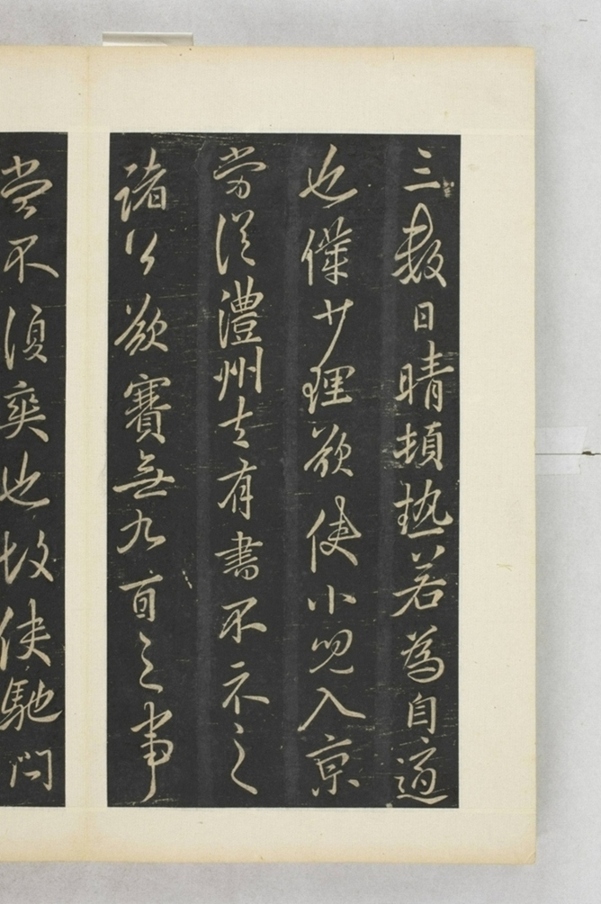 三數日晴頓熱若為自適
也僕少理欲使小兒入京
常從澧州去有書不示之
諸公欲賽無九百之事
當不須爽也故使馳問